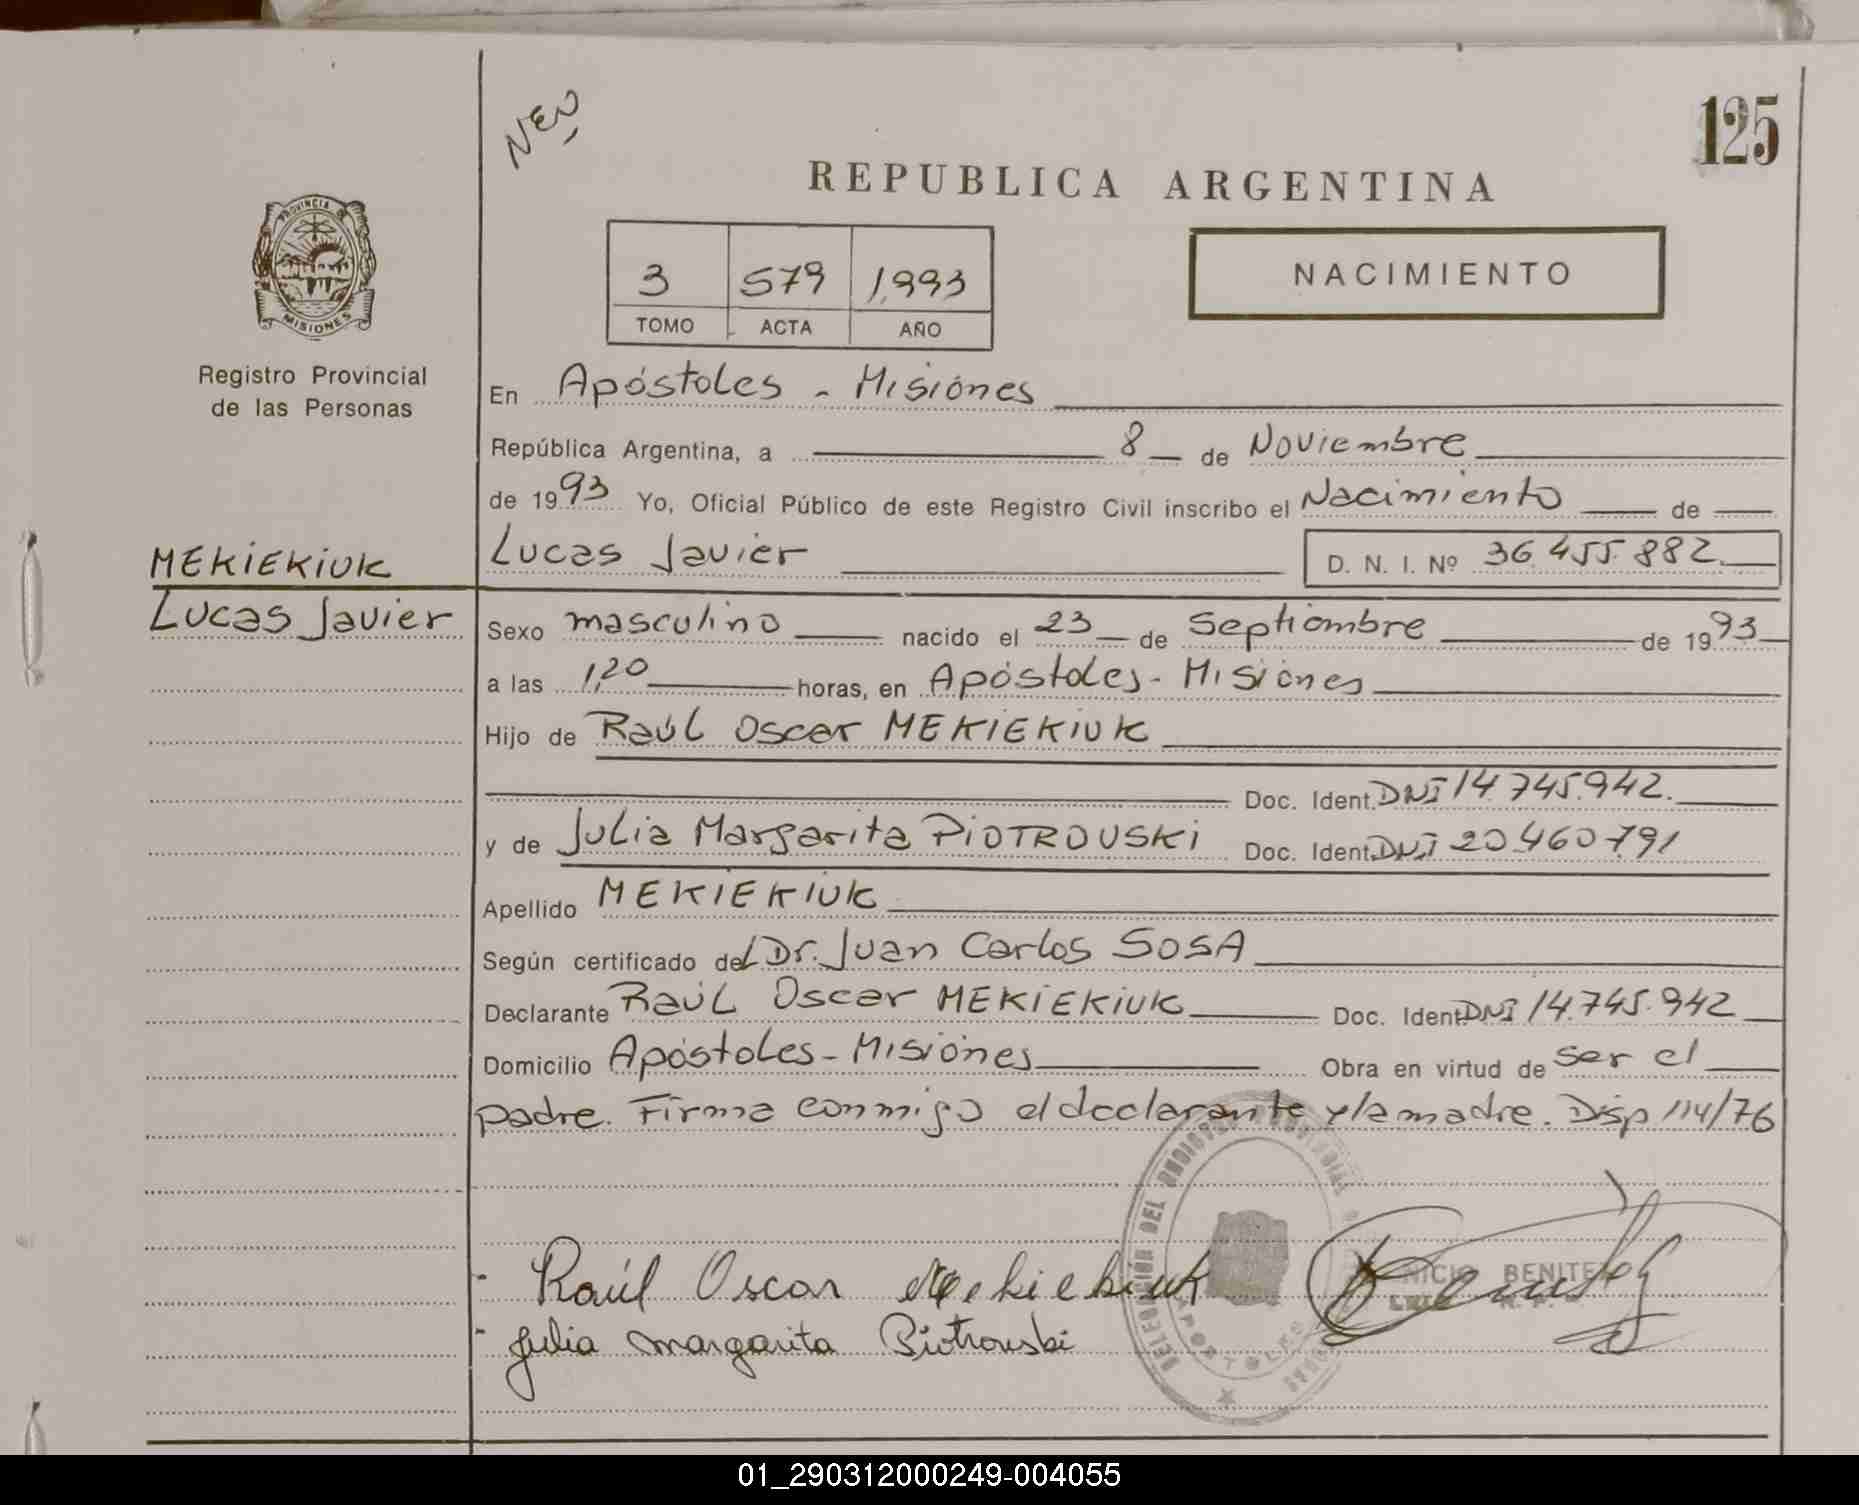 NEU
125
REPUBLICA ARGENTINA
PROVINCIA DE
MISIONES
3 579 1.993
TOMO ACTA AÑO
NACIMIENTO
Registro Provincial
de las Personas
En Apóstoles - Misiones
República Argentina, a 8 de Noviembre
de 1993 Yo, Oficial Público de este Registro Civil inscribo el Nacimiento de
MEKIEKIUK
Lucas Javier
Lucas Javier D. N. I. Nº 36.455.882.
Sexo masculino nacido el 23 de Septiembre de 1993
a las 1,20 horas, en Apóstoles - Misiones
Hijo de Raúl Oscar MEKIEKIUK
Doc. Ident. DNI 14.745.942.
y de Julia Margarita PIOTROUSKI Doc. Ident. DNI 20.460.791
Apellido MEKIEKIUK
Según certificado del Dr. Juan Carlos SOSA
Declarante Raúl Oscar MEKIEKIUK Doc. Ident DNI 14.745.942
Domicilio Apóstoles - Misiones Obra en virtud de ser el
padre. Firma conmigo el declarante y la madre. Disp. 114/76
DELEGACIÓN DEL REGISTRO PROVINCIAL
APOSTOLES
Raúl Oscar Mekiekiuk
BENITEZ
Julia Margarita Piotrouski
01_290312000249-004055